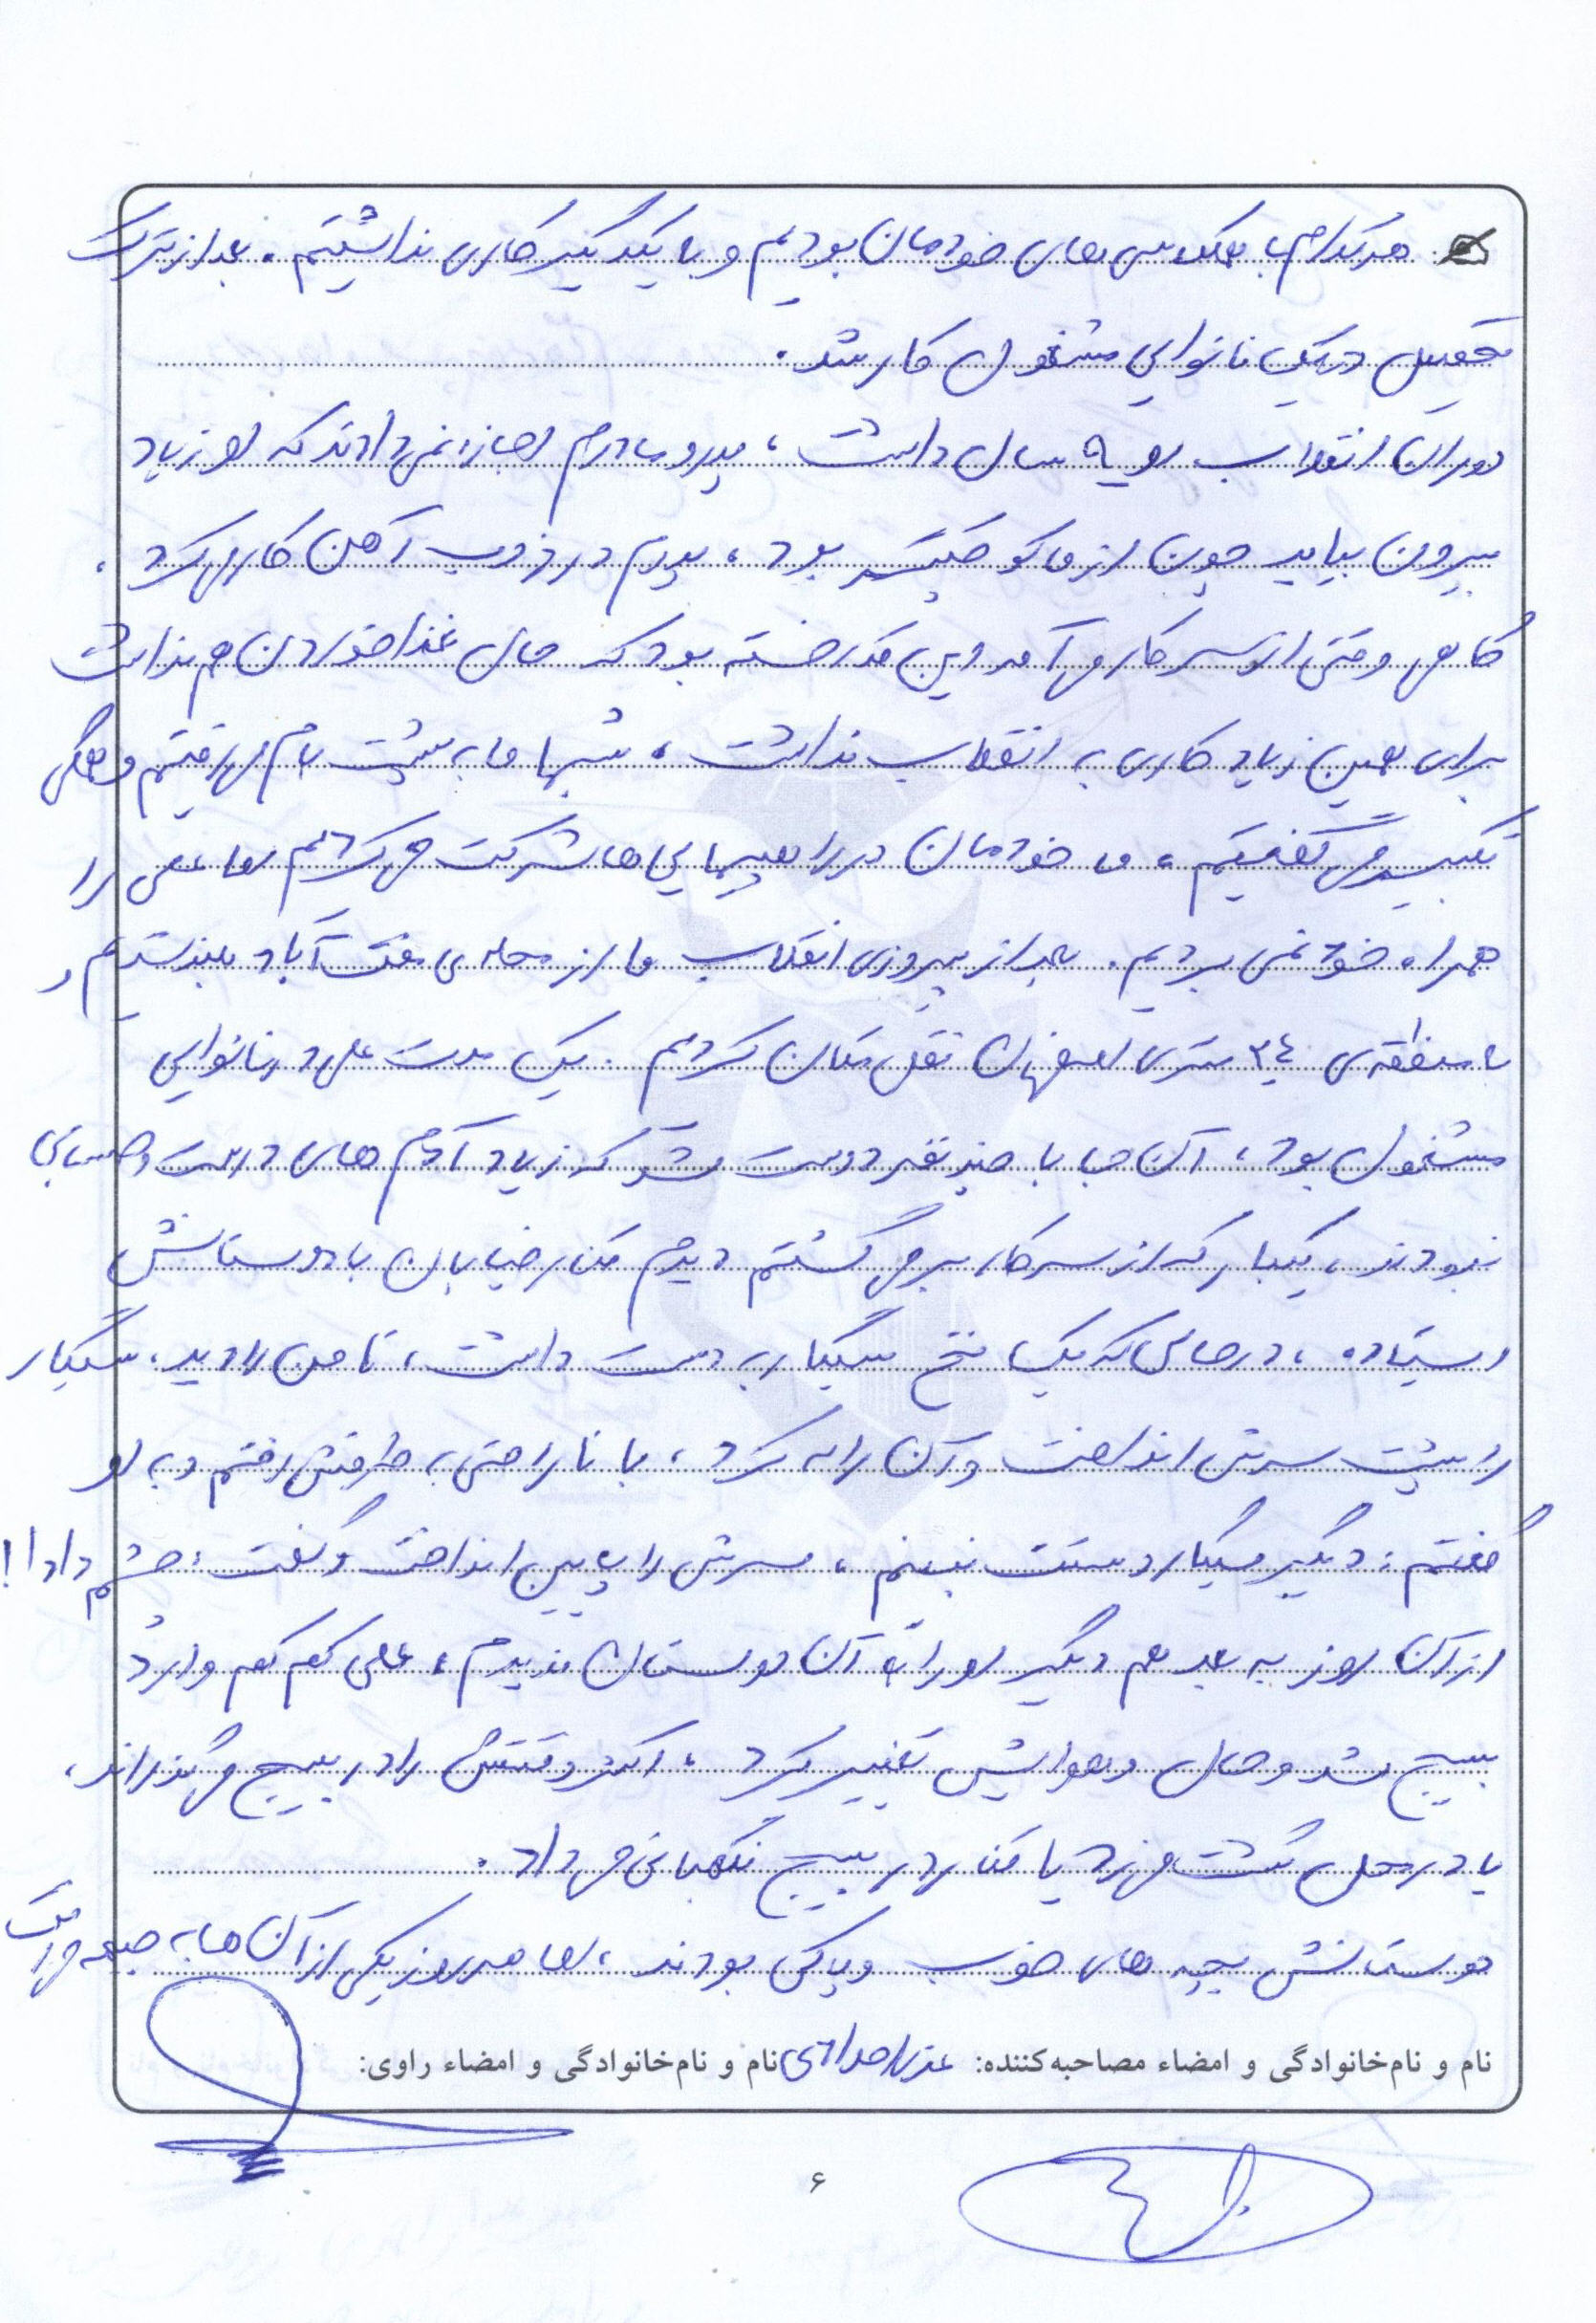 هرکدام با همکلاسی‌های خودمان بودیم و با یکدیگر کاری نداشتیم. بعد از ترک
تحصیل در یک نانوایی مشغول کار شد.
دوران انقلاب او ۹ سال داشت، پدر و مادرم اجازه نمی‌دادند که او زیاد
بیرون بیاید چون از ما کوچیکتر بود، پدرم در ذوب آهن کار می‌کرد،
گاهی وقتی از سر کار می‌آمد این قدر خسته بود که حال غذا خوردن هم نداشت
برای همین زیاد کاری به انقلاب نداشت، شبها ما به پشت بام می‌رفتیم و همگی
تکبیر می‌گفتیم، ما خودمان در راهپیمایی‌ها شرکت می‌کردیم اما علی را
همراه خود نمی‌بردیم. بعد از پیروزی انقلاب ما از محله‌ی مفت‌آباد بلند شدیم و
به منطقه‌ی ۲۴ متری اصفهان نقل مکان کردیم. یک مدت علی در نانوایی
مشغول بود، آن جا با چند نفر دوست شد که زیاد آدم های درست و حسابی
نبودند، یکبار که از سر کار برمی‌گشتم دیدم کنار خیابان با دوستانش
ایستاده، درحالی که یک نخ سیگار به دست داشت، تا من را دید، سیگار
را پشت سرش انداخت و آن را له کرد، با ناراحتی به طرفش رفتم و به او
گفتم: دیگر سیگار دستت نبینم، سرش را پایین انداخت و گفت: چشم دادا!
از آن روز به بعد هم دیگر او را با آن دوستان ندیدم، علی کم کم وارد
بسیج شد و حال و هوایش تغییر کرد، اکثر وقتش را در بسیج می‌گذراند،
یا در محل گشت می‌زد یا کنار در بسیج نگهبانی می‌داد.
دوستانش بچه های خوب و پاکی بودند، اما هر روز یکی از آن ها به جبهه می‌رفت
نام و نام‌خانوادگی و امضاء مصاحبه‌کننده: نام و نام‌خانوادگی و امضاء راوی:
۶